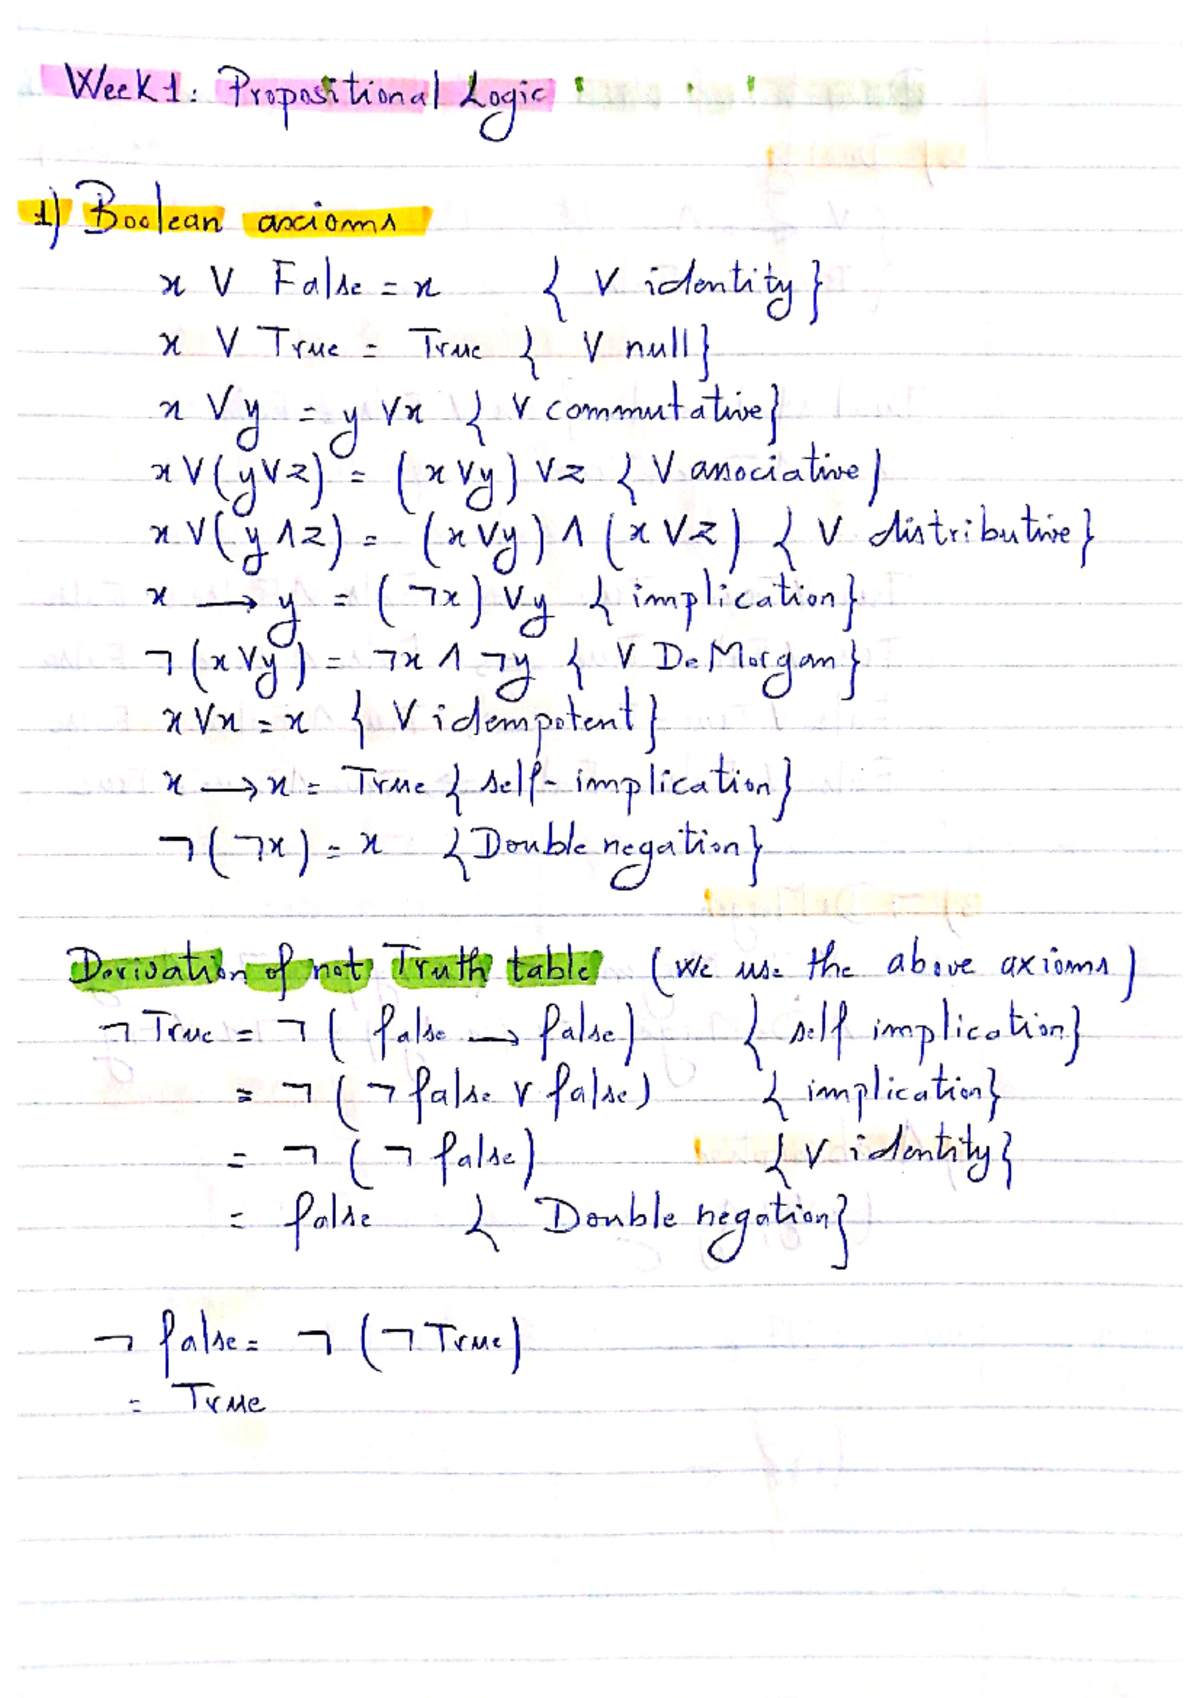 Week 1: Propositional Logic
1) Boolean axioms
x ∨ False = x { ∨ identity}
x ∨ True = True { ∨ null}
x ∨ y = y ∨ x { ∨ commutative}
x ∨ (y ∨ z) = (x ∨ y) ∨ z { ∨ associative}
x ∨ (y ∧ z) = (x ∨ y) ∧ (x ∨ z) { ∨ distributive}
x → y = (¬x) ∨ y { implication}
¬(x ∨ y) = ¬x ∧ ¬y { ∨ De Morgan}
x ∨ x = x { ∨ idempotent}
x → x = True { self-implication}
¬(¬x) = x {Double negation}
Derivation of not Truth table (We use the above axioms)
¬ True = ¬ ( false → false) { self implication}
= ¬ (¬ false ∨ false) { implication}
= ¬ (¬ false) { ∨ identity}
= false { Double negation}
¬ false = ¬ (¬ True)
= True